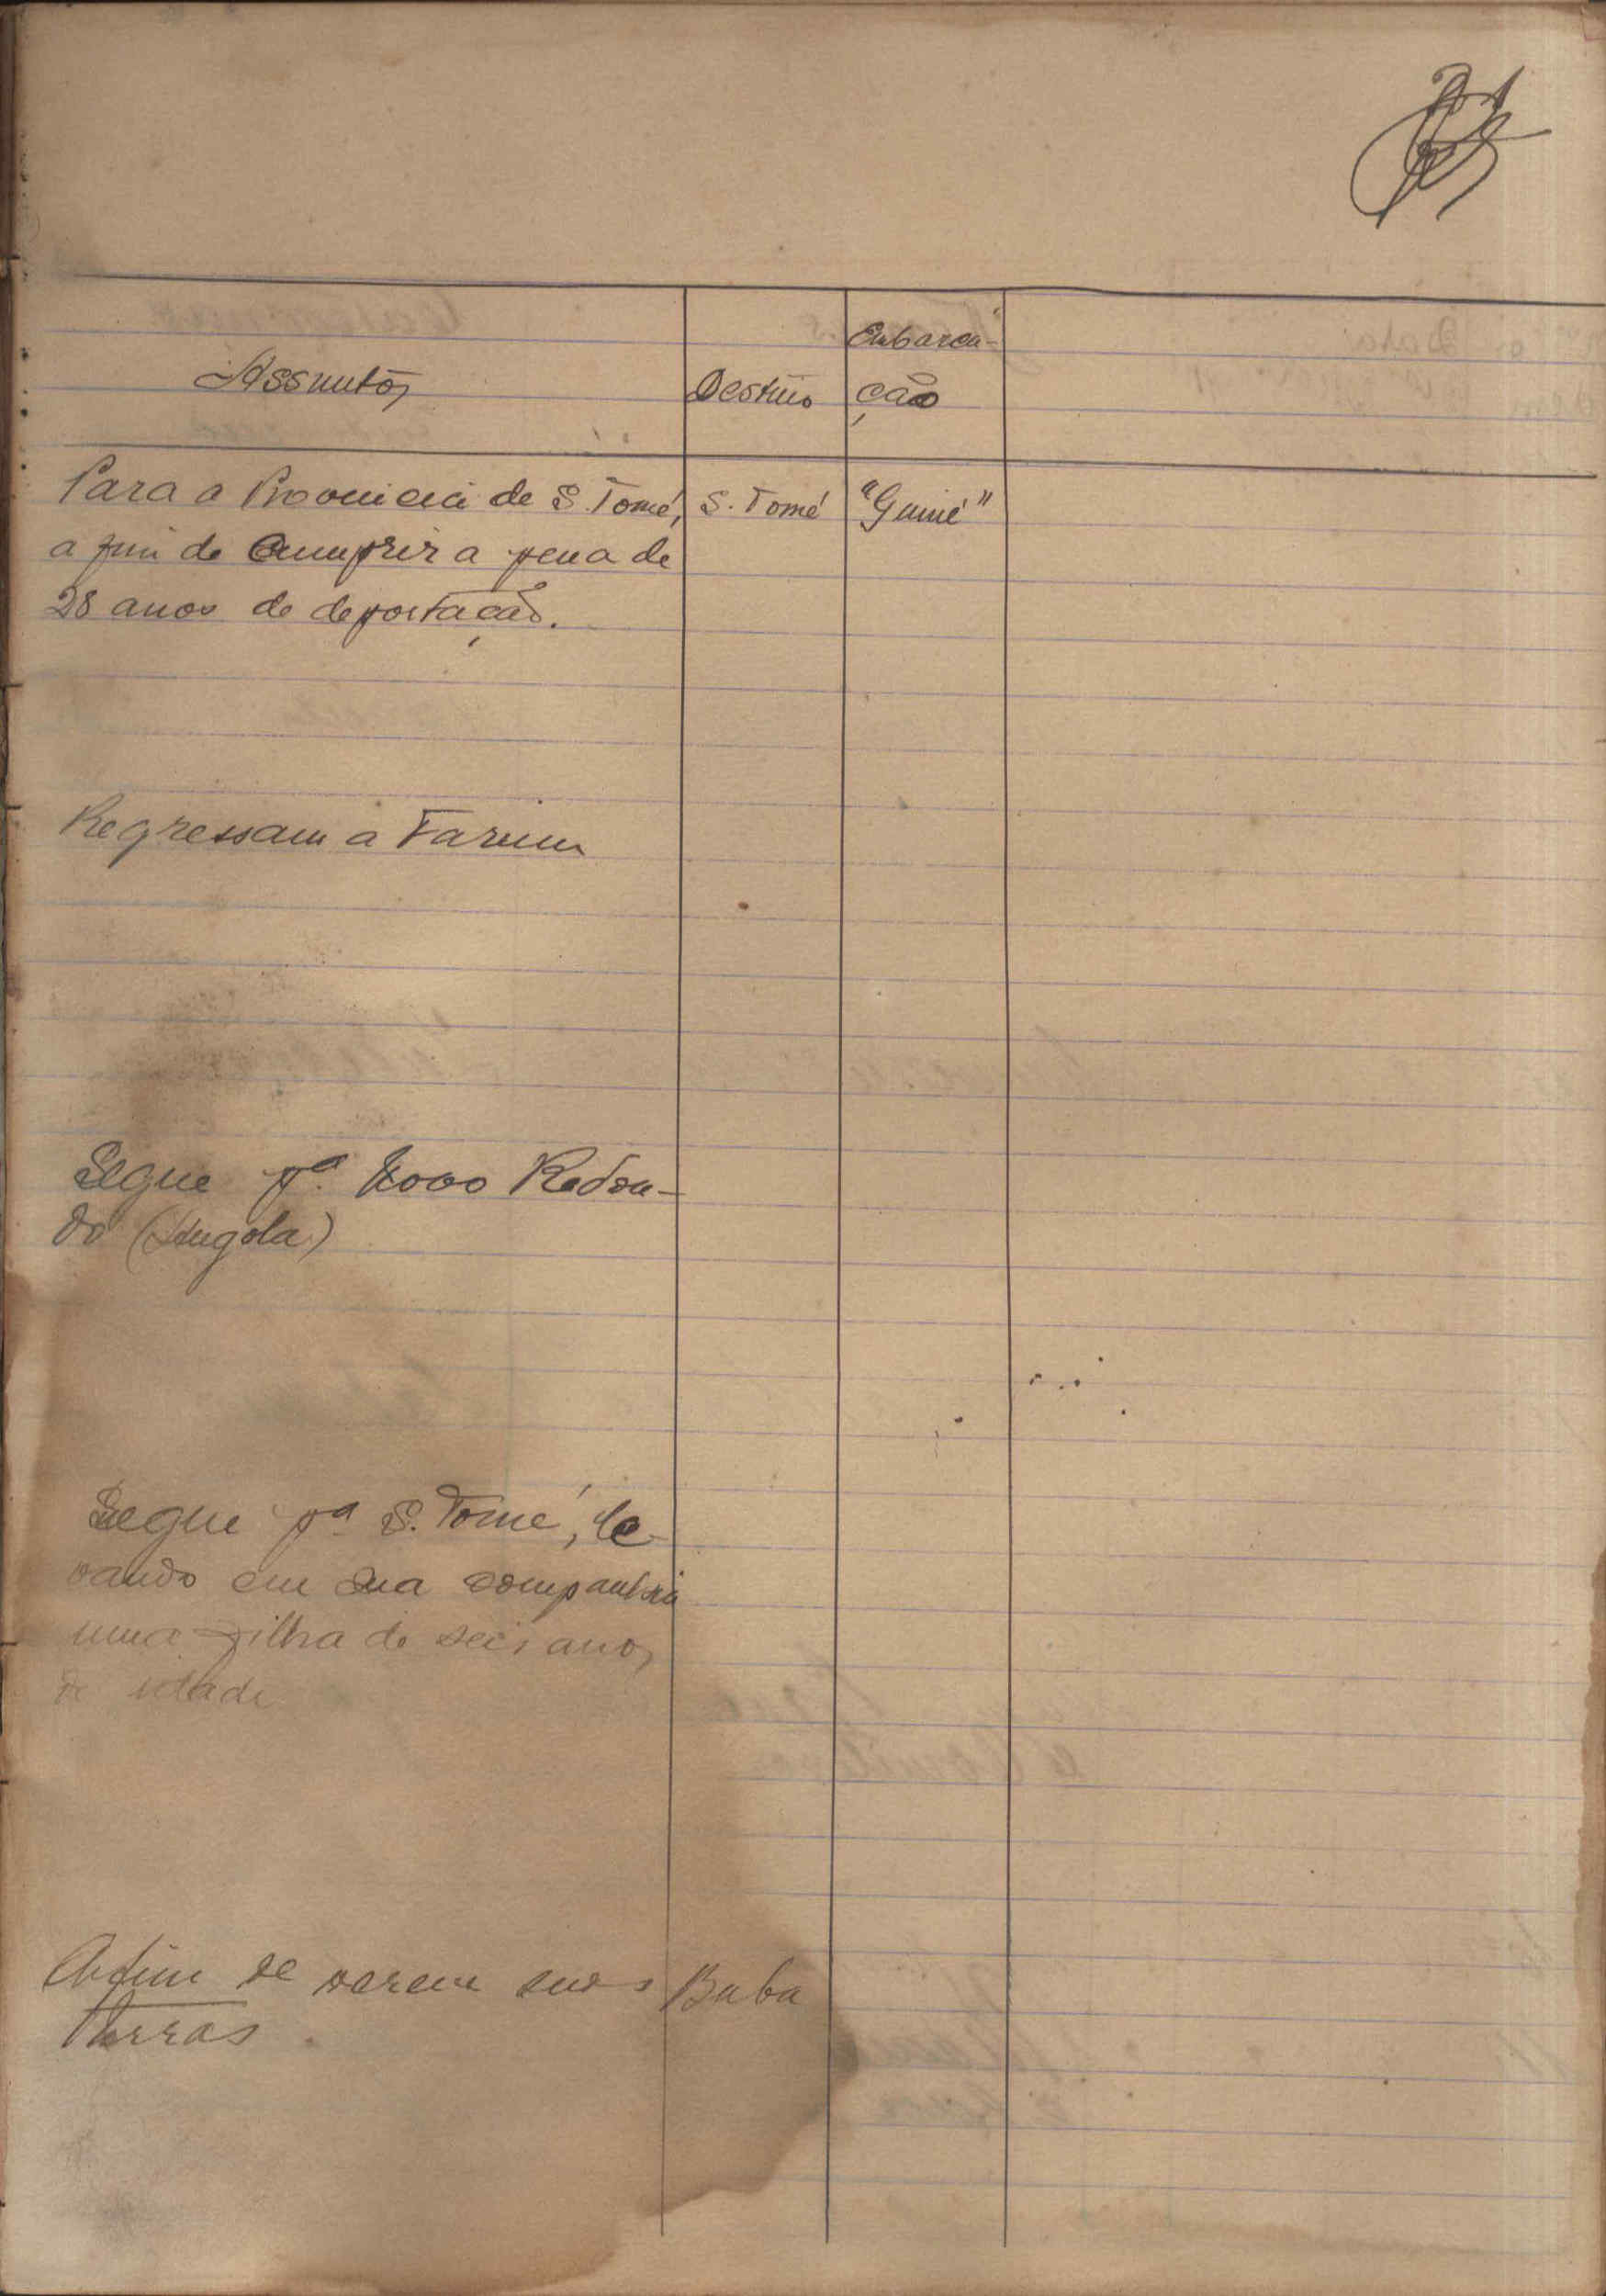 Assuntos
Destino
Embarca-
ção
Para a Provincia de S. Tomé,
a fim de cumprir a pena de
28 anos de deportação.
S. Tomé
"Guiné"
Regressam a Farim
Segue pª. Novo Redon-
do (Angola)
Segue pª S. Tomé, le-
vando em sua companhia
uma filha de seis anos
de idade
Afim de verem suas
terras.
Buba